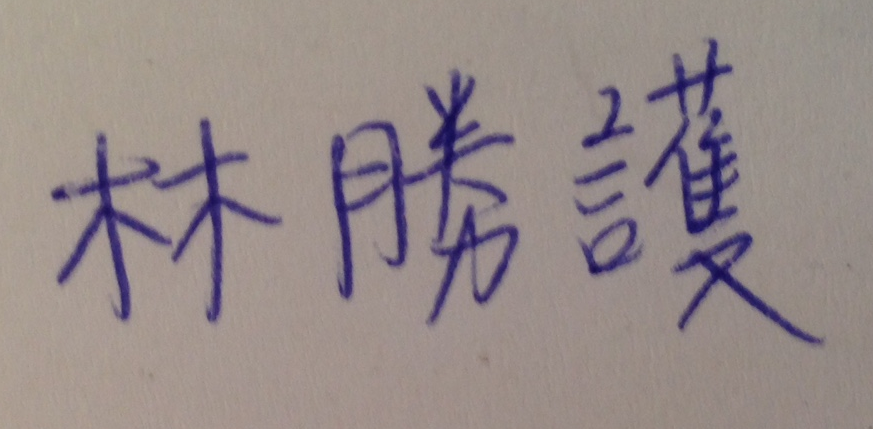 林勝護